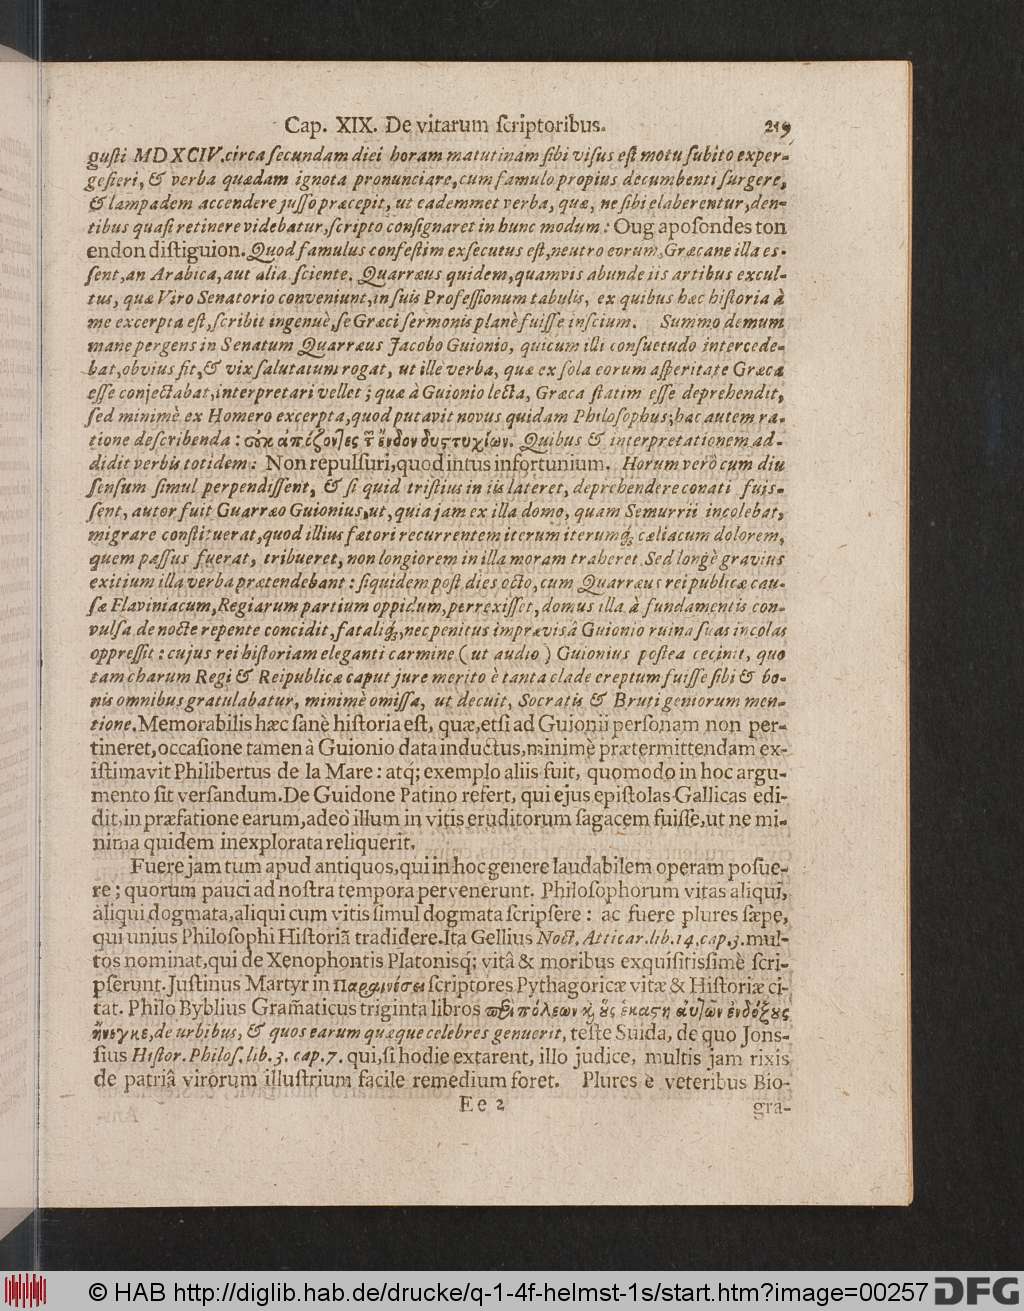 Cap. XIX. De vitarum ſcriptoribus. 219
guſti MDXCIV. circa ſecundam diei horam matutinam ſibi viſus eſt motu ſubito exper-
gefieri, & verba quædam ignota pronunciare, cum famulo propius decumbenti ſurgere,
& lampadem accendere juſſo præcepit, ut eademmet verba, quæ, ne ſibi elaberentur, den-
tibus quaſi retinere videbatur, ſcripto conſignaret in hunc modum: Oug apoſondes ton
endon diſtiguion. Quod famulus confeſtim exſecutus eſt, neutro eorum, Græcane illa eſ-
ſent, an Arabica, aut alia ſciente. Quarræus quidem, quamvis abunde iis artibus excul-
tus, quæ Viro Senatorio conveniunt, in ſuis Profeſſionum tabulis, ex quibus hæc hiſtoria à
me excerpta eſt, ſcribit ingenuè, ſe Græci ſermonis planè fuiſſe inſcium. Summo demum
mane pergens in Senatum Quarræus Jacobo Guionio, quicum illi conſuetudo intercede-
bat, obvius fit, & vix ſalutatum rogat, ut ille verba, quæ ex ſola eorum aſperitate Græca
eſſe conjectabat, interpretari vellet; quæ à Guionio lecta, Græca ſtatim eſſe deprehendit,
ſed minimè ex Homero excerpta, quod putavit novus quidam Philoſophus; hac autem ra-
tione deſcribenda: οὐκ ἀπόζοντες τ̃ ἔνδον δυςτυχίων. Quibus & interpretationem ad-
didit verbis totidem: Non repulſuri, quod intus infortunium. Horum verò cum diu
ſenſum ſimul perpendiſſent, & ſi quid triſtius in iis lateret, deprehendere conati fuiſ-
ſent, autor fuit Guarræo Guionius, ut, quia jam ex illa domo, quam Semurrii incolebat,
migrare conſtituerat, quod illius fœtori recurrentem iterum iterumq́; cæliacum dolorem,
quem paſſus fuerat, tribueret, non longiorem in illa moram traheret. Sed longè gravius
exitium illa verba prætendebant: ſiquidem poſt dies octo, cum Quarræus reipublicæ cau-
ſa Flaviniacum, Regiarum partium oppidum, perrexiſſet, domus illa à fundamentis con-
vulſa de nocte repente concidit, fataliq́;, nec penitus imprævisâ Guionio ruina ſuas incolas
oppreſſit: cujus rei hiſtoriam eleganti carmine (ut audio) Guionius poſtea cecinit, quo
tam charum Regi & Reipublicæ caput jure merito è tanta clade ereptum fuiſſe ſibi & bo-
nis omnibus gratulabatur, minimè omiſſa, ut decuit, Socratis & Bruti geniorum men-
tione. Memorabilis hæc ſanè hiſtoria eſt, quæ, etſi ad Guionii perſonam non per-
tineret, occaſione tamen à Guionio data inductus, minimè prætermittendam ex-
iſtimavit Philibertus de la Mare: atq́; exemplo aliis fuit, quomodo in hoc argu-
mento ſit verſandum. De Guidone Patino refert, qui ejus epiſtolas Gallicas edi-
dit, in præfatione earum, adeò illum in vitis eruditorum ſagacem fuiſſe, ut ne mi-
nima quidem inexplorata reliquerit.
Fuere jam tum apud antiquos, qui in hoc genere laudabilem operam poſue-
re; quorum pauci ad noſtra tempora pervenerunt. Philoſophorum vitas aliqui,
aliqui dogmata, aliqui cum vitis ſimul dogmata ſcripſere: ac fuere plures ſæpe,
qui unius Philoſophi Hiſtoriã tradidere. Ita Gellius Noct. Atticar. lib. 14. cap. 3. mul-
tos nominat, qui de Xenophontis Platonisq́; vitâ & moribus exquiſitiſſimè ſcri-
pſerunt. Juſtinus Martyr in Παραινέσει ſcriptores Pythagoricæ vitæ & Hiſtoriæ ci-
tat. Philo Byblius Gram̃aticus triginta libros περὶ πόλεων κ̀ οὓς ἑκάστη αὐτῶν ἐνδόξους
ἤνεγκε, de urbibus, & quos earum quæque celebres genuerit, teſte Suida, de quo Jonſ-
ſius Hiſtor. Philoſ. lib. 3. cap. 7. qui, ſi hodie extarent, illo judice, multis jam rixis
de patriâ virorum illuſtrium facile remedium foret. Plures è veteribus Bio-
E e 2 gra-
© HAB http://diglib.hab.de/drucke/q-1-4f-helmst-1s/start.htm?image=00257 DFG